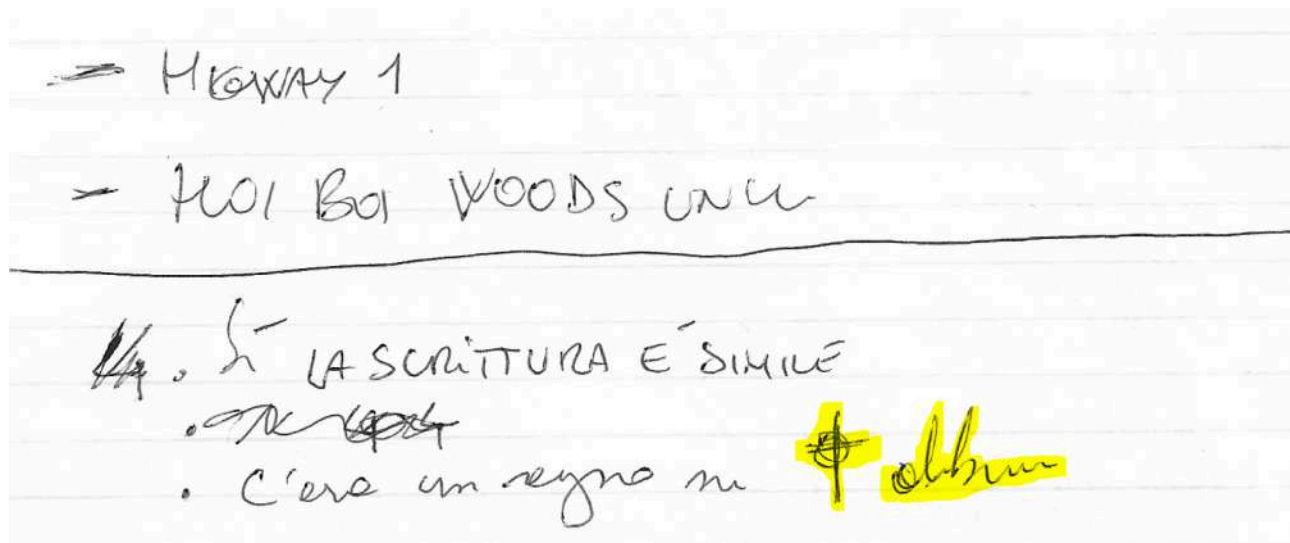 - HIGWAY 1
- BOI WOODS
. Sì LA SCRITTURA È SIMILE
. C'era un segno su album